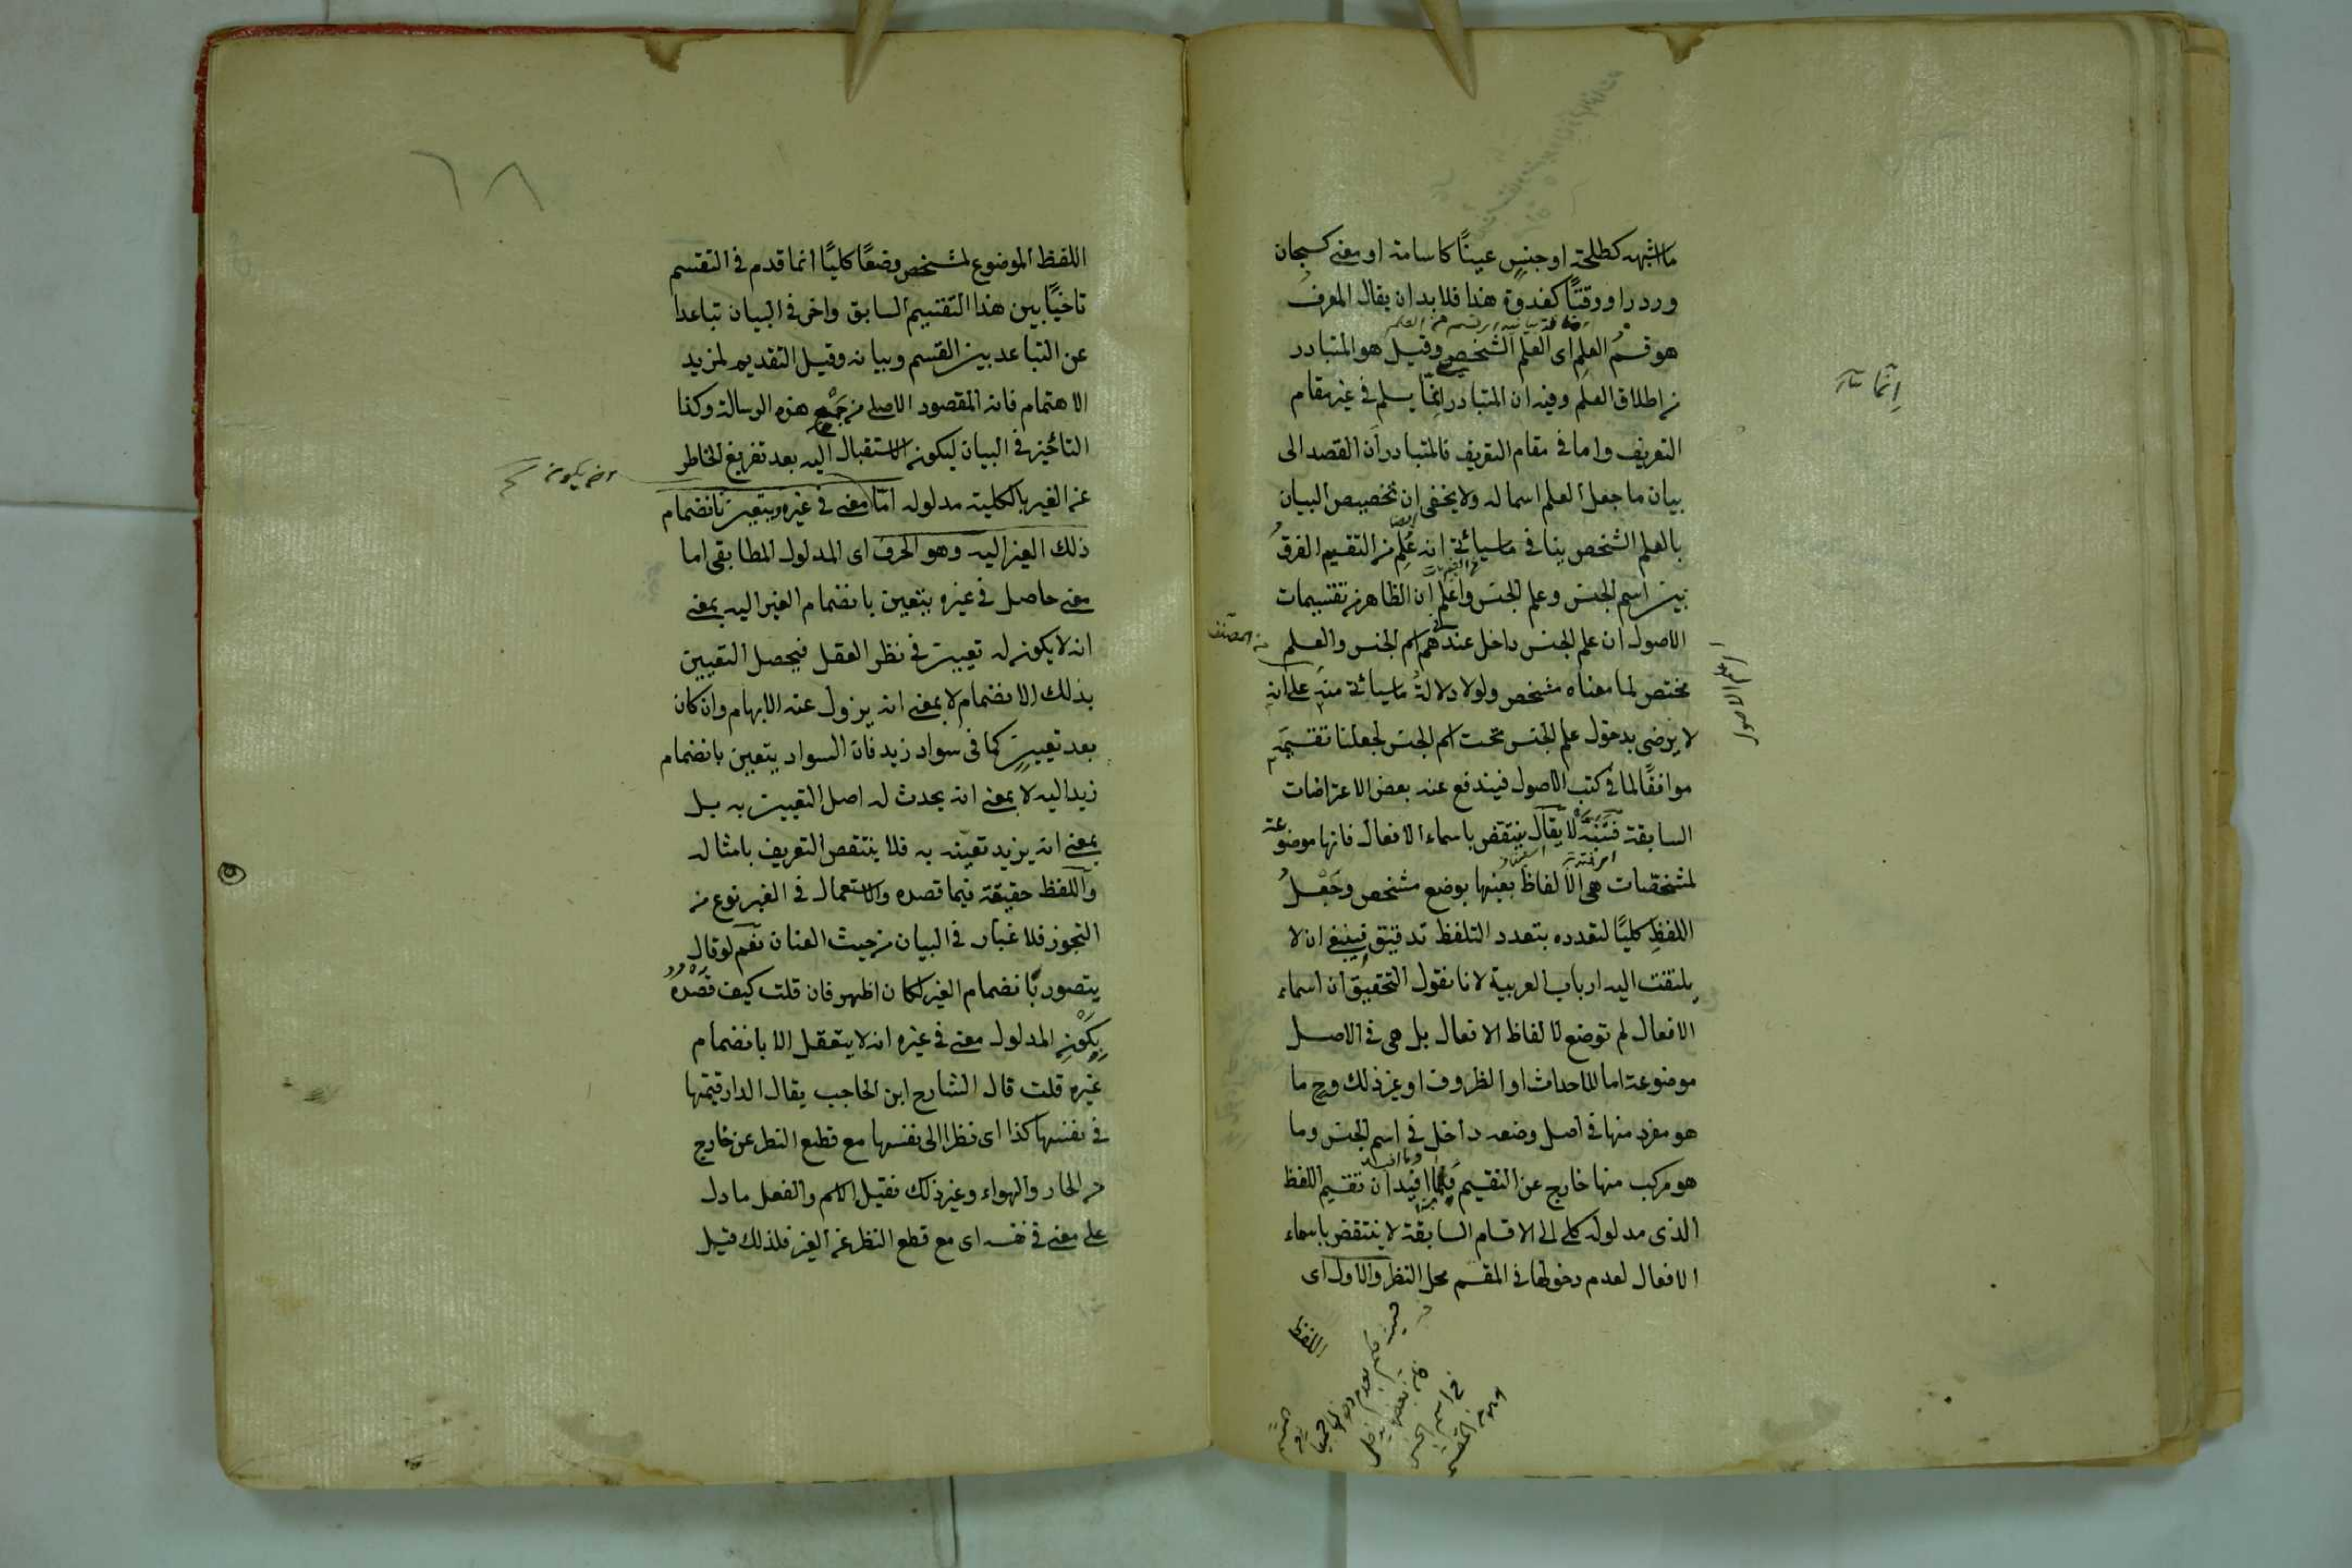 ما اشبهه كطلحة او جنس عينًا كاسامة او معنى كسبحان
وردرا ووقتًا كغدوة هذا فلا بد ان يقال المعرف
هو قسم العلم اى العلم الشخص وقيل هو المتبادر
من اطلاق العلم وفيه ان المتبادر انما يسلم فى غير مقام
التعريف واما فى مقام التعريف فالمتبادر ان القصد الى
بيان ما جعل العلم اسما له ولا يخفى ان تخصيص البيان
بالعلم الشخص ينافى ما سيأتى انه علم من التقسيم الفرق
بين اسم الجنس وعلم الجنس واعلم ان الظاهر من تقسيمات
الاصول ان علم الجنس داخل عندهم فى اسم الجنس والعلم
مختص لما معناه مشخص ولولا دلالة ما سيأتى منه على انه
لا يرضى بدخول علم الجنس تحت اسم الجنس لجعلنا تقسيمه
موافقًا لما فى كتب الاصول فيندفع عنه بعض الاعتراضات
السابقة فتنبه لا يقال ينتقض باسماء الافعال فانها موضوعة
لمشخصات هى الالفاظ بعينها بوضع مشخص وجعل
اللفظ كليًا لتعدده بتعدد التلفظ تدقيق فينبغى ان لا
يلتفت اليه ارباب العربية لانا نقول التحقيق ان اسماء
الافعال لم توضع لالفاظ الافعال بل هى فى الاصل
موضوعة اما للاحداث او الظروف او غير ذلك وح ما
هو مفرد منها فى اصل وضعه داخل فى اسم الجنس وما
هو مركب منها خارج عن التقسيم فما افيد ان تقسيم اللفظ
الذى مدلوله كلى الى الاقسام السابقة لا ينتقض باسماء
الافعال لعدم دخولها فى المقسم محل النظر والاول اى
اللفظ
٦٨
اللفظ الموضوع لمشخص وضعًا كليًا انما قدم فى التقسيم
تاخيًا بين هذا التقسيم السابق واخر فى البيان تباعدا
عن التباعد بين القسم وبيانه وقيل التقديم لمزيد
الاهتمام فانه المقصود الاصلى من جمع هذه الرسالة وكذا
التأخير فى البيان ليكون الاستقبال اليه بعد تفريغ الخاطر
عن الغير بالكلية مدلوله اما معنى فى غيره ويتعين بانضمام
ذلك الغير اليه وهو الحرف اى المدلول المطابقى اما
معنى حاصل فى غيره يتعين بانضمام الغير اليه بمعنى
انه لا يكون له تعيين فى نظر العقل فيحصل التعيين
بذلك الانضمام لا بمعنى انه يزول عنه الابهام وان كان
بعد تعيين كما فى سواد زيد فان السواد يتعين بانضمام
زيد اليه لا بمعنى انه يحدث له اصل التعيين به بل
بمعنى انه يزيد تعينه به فلا ينتقض التعريف بامثاله
واللفظ حقيقة فيما قصده والاستعمال فى الغير نوع من
التجوز فلا غبار فى البيان من حيث العنان نعم لو قال
يتصور بانضمام الغير لكان اظهر فان قلت كيف قصده
بكون المدلول معنى فى غيره انه لا يتعقل الا بانضمام
غيره قلت قال الشارح ابن الحاجب يقال الدار قيمتها
فى نفسها كذا اى نظرا الى نفسها مع قطع النظر عن خارج
من الجار والهواء وغير ذلك فقيل الاسم والفعل ما دل
على معنى فى نفسه اى مع قطع النظر عن الغير فلذلك قيل